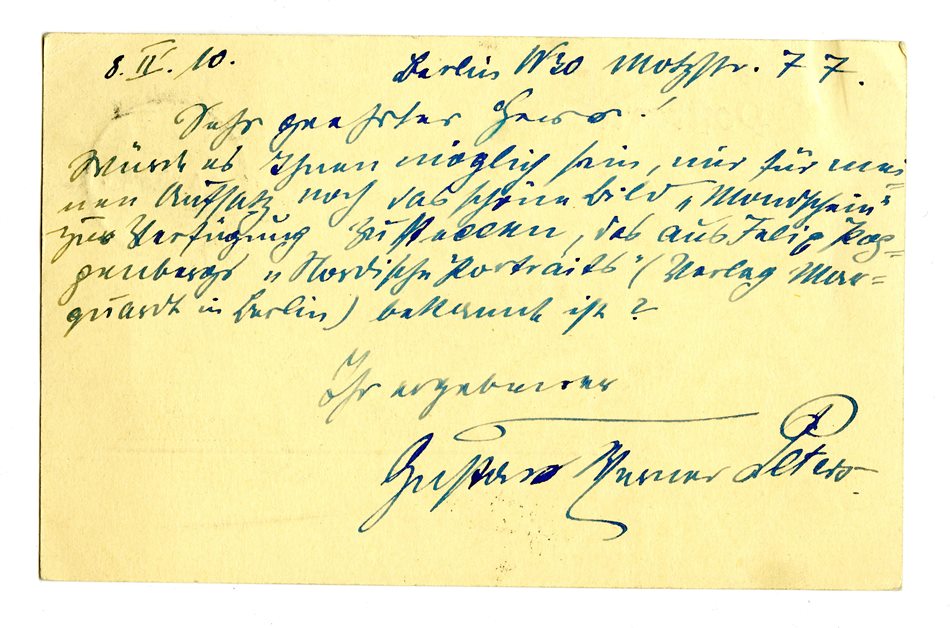 8. II. 10. Berlin W30 Motzstr. 77.
Sehr geehrter Herr!
Würde es Ihnen möglich sein, mir für mei-
nen Aufsatz noch das schöne Bild „Mondschein"
zur Verfügung zu stellen, das aus Felix Pop-
penbergs „Nordische Portraits" (Verlag Mar-
quardt in Berlin) bekannt ist?
Ihr ergebener
Gustav Werner Peters